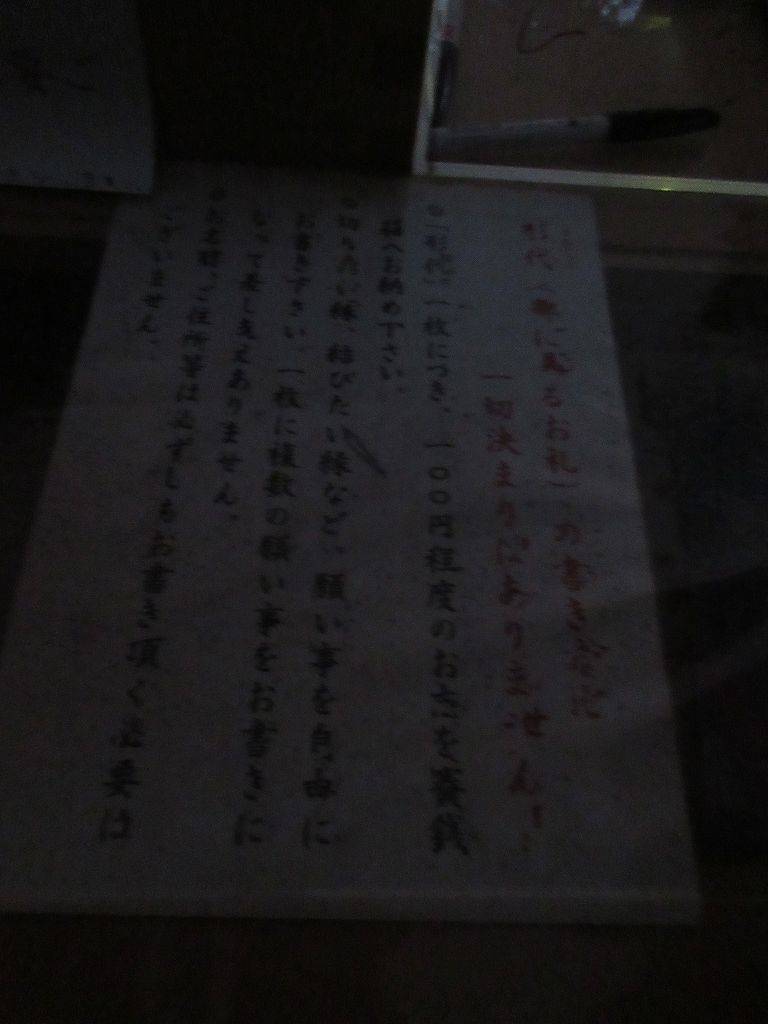 形代（碑に貼るお札）の書き方に
一切決まりはありません！
○「形代」一枚につき、一〇〇円程度のお志を賽銭
箱へお納め下さい。
○切りたい縁、結びたい縁など、願い事を自由に
お書き下さい。一枚に複数の願い事をお書きに
なって差し支えありません。
○お名前、ご住所等は必ずしもお書き頂く必要は
ございません。